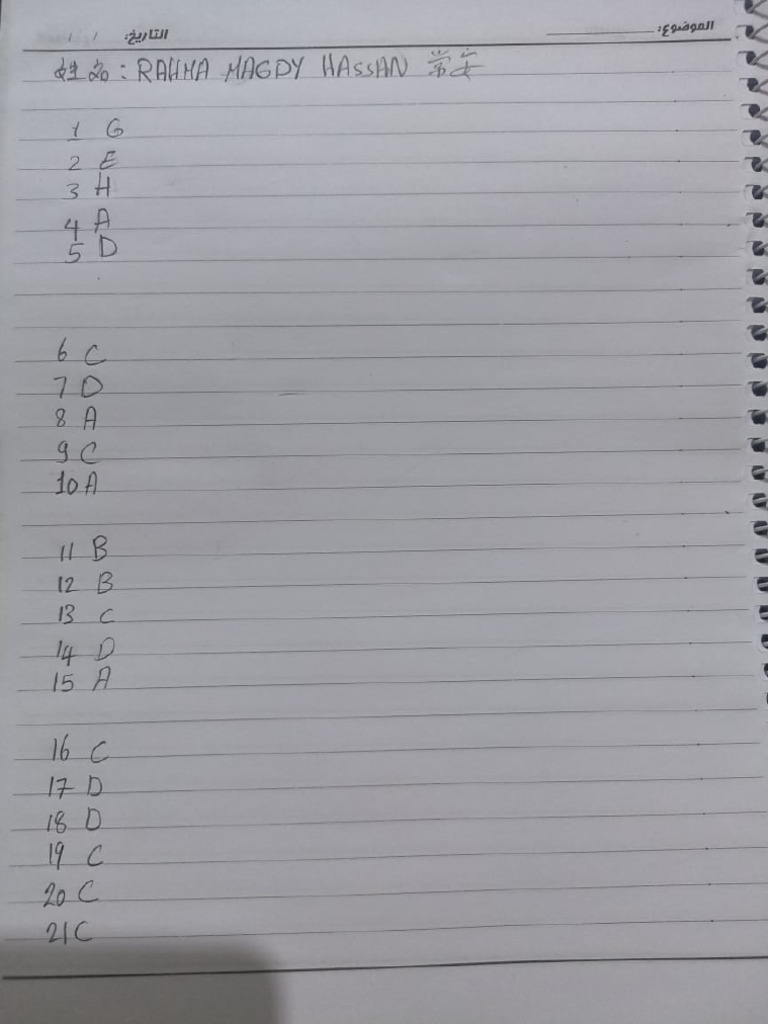 الموضوع: التاريخ: / /
姓名: RAHMA MAGDY HASSAN 常安
1 G
2 E
3 H
4 A
5 D
6 C
7 D
8 A
9 C
10 A
11 B
12 B
13 C
14 D
15 A
16 C
17 D
18 D
19 C
20 C
21 C